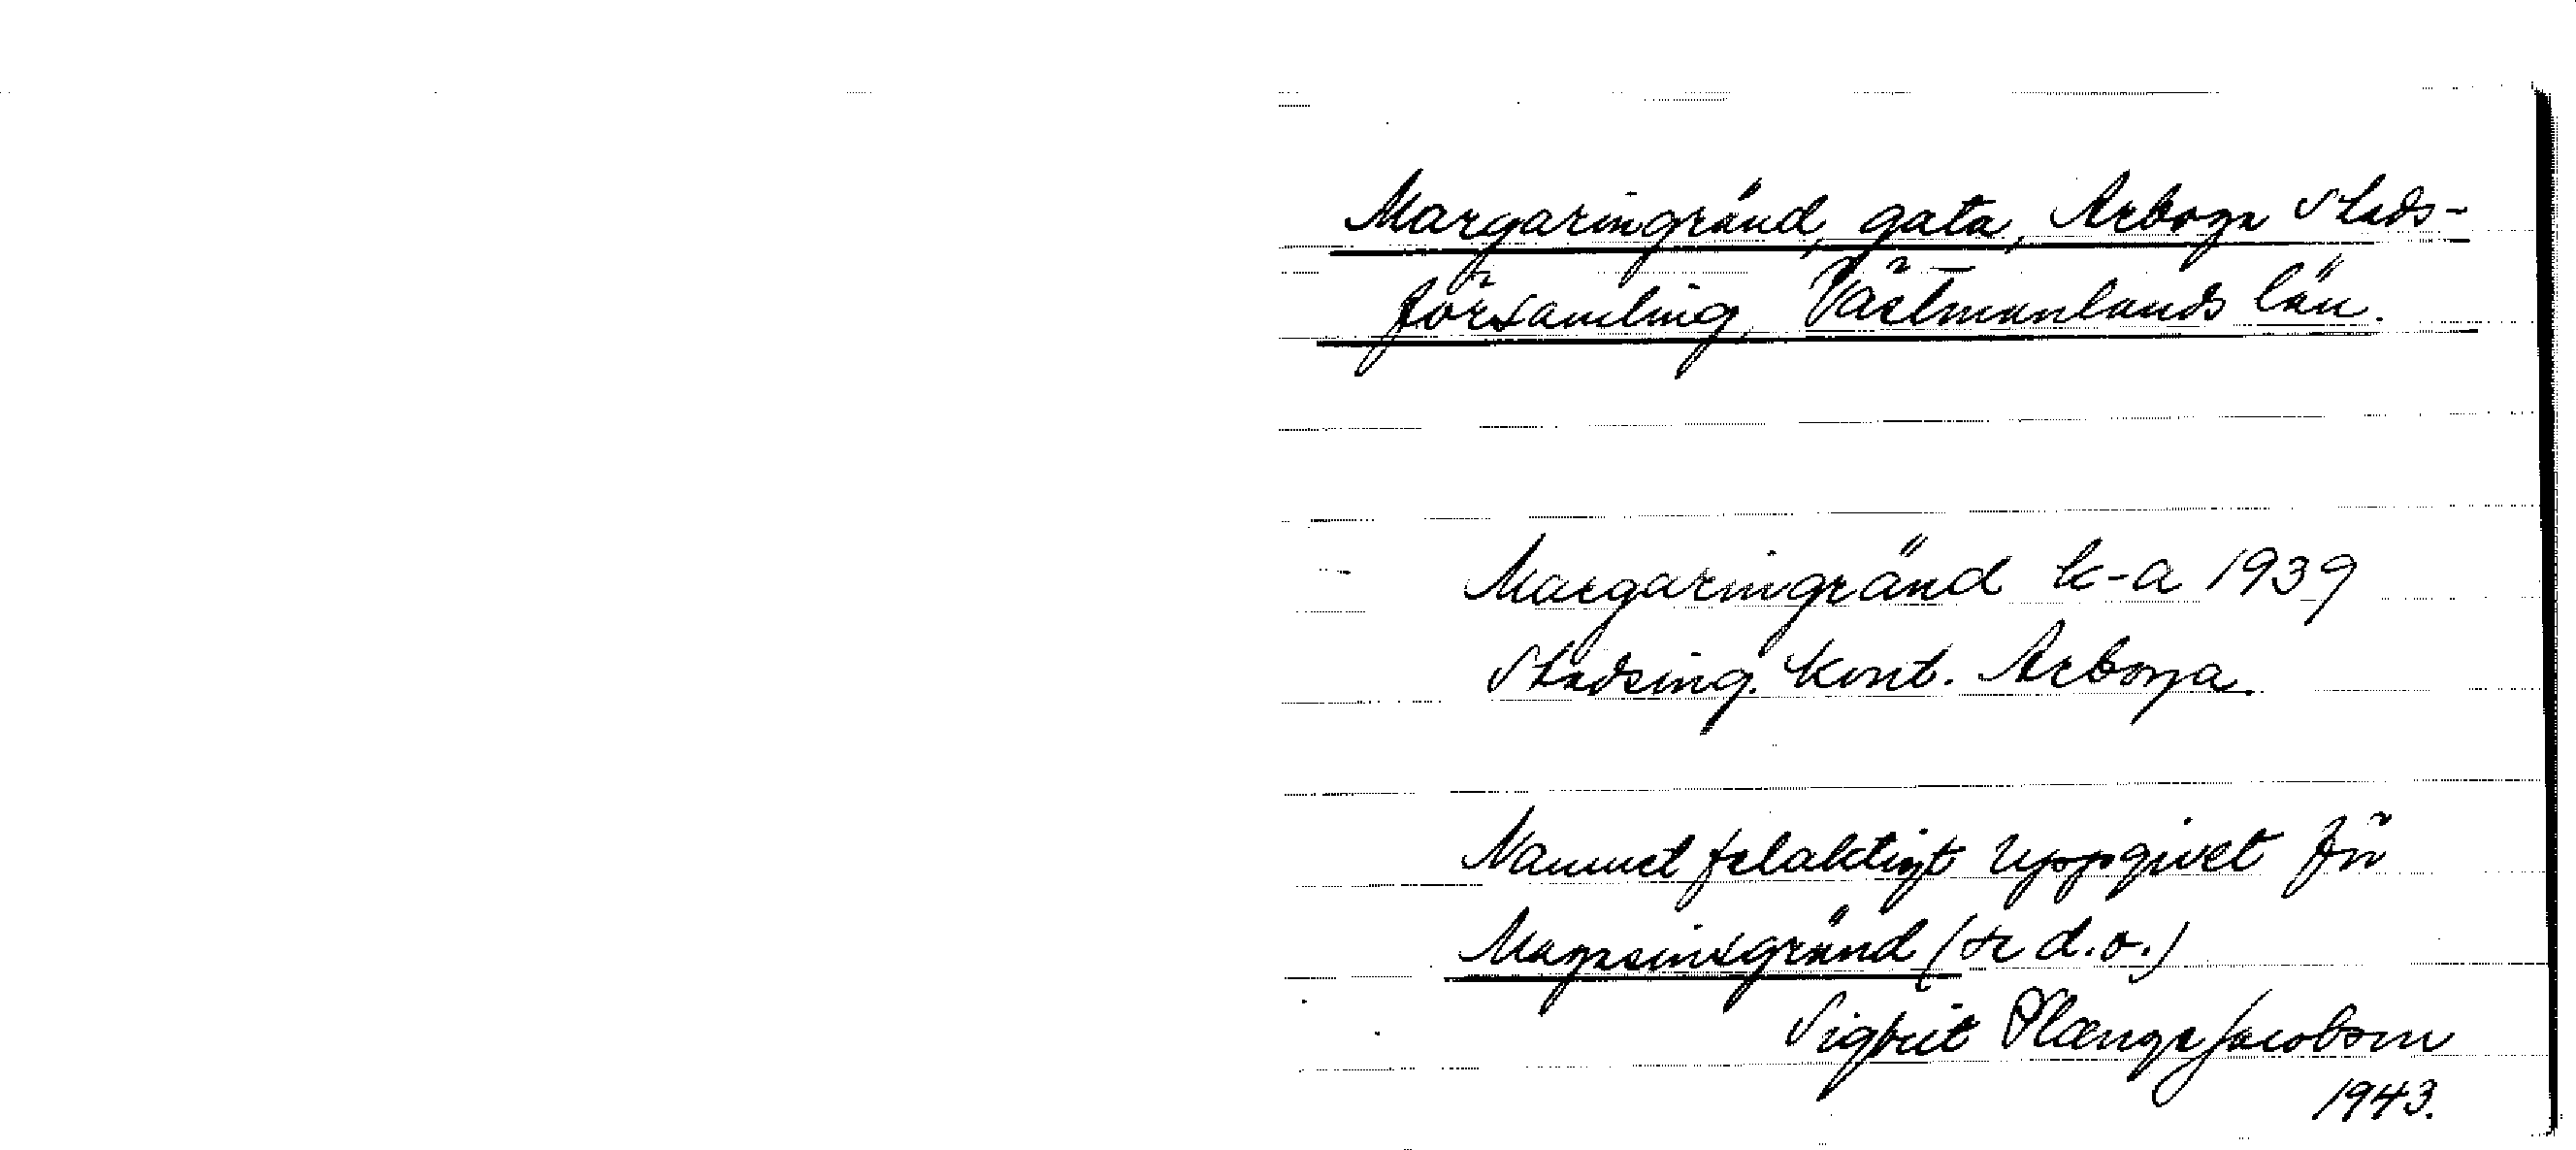 Margaringränd, gata, Arboga stads-
församling, Västmanlands län.
Margaringränd k-a 1939
Stadsing. kont. Arboga.
Namnet felaktigt uppgivet för
Magasinsgränd (se d.o.)
Sigbrit Plænge Jacobson
1943.